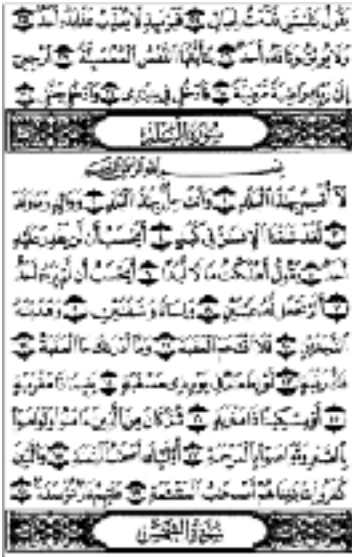 يَقُولُ يَٰلَيْتَنِى قَدَّمْتُ لِحَيَاتِى ۝ فَيَوْمَئِذٍ لَّا يُعَذِّبُ عَذَابَهُۥٓ أَحَدٌ ۝
وَلَا يُوثِقُ وَثَاقَهُۥٓ أَحَدٌ ۝ يَٰٓأَيَّتُهَا ٱلنَّفْسُ ٱلْمُطْمَئِنَّةُ ۝ ٱرْجِعِىٓ
إِلَىٰ رَبِّكِ رَاضِيَةً مَّرْضِيَّةً ۝ فَٱدْخُلِى فِى عِبَٰدِى ۝ وَٱدْخُلِى جَنَّتِى ۝
سُورَةُ ٱلْبَلَدِ
بِسْمِ ٱللَّهِ ٱلرَّحْمَٰنِ ٱلرَّحِيمِ
لَآ أُقْسِمُ بِهَٰذَا ٱلْبَلَدِ ۝ وَأَنتَ حِلٌّۢ بِهَٰذَا ٱلْبَلَدِ ۝ وَوَالِدٍ وَمَا وَلَدَ
۝ لَقَدْ خَلَقْنَا ٱلْإِنسَٰنَ فِى كَبَدٍ ۝ أَيَحْسَبُ أَن لَّن يَقْدِرَ عَلَيْهِ
أَحَدٌ ۝ يَقُولُ أَهْلَكْتُ مَالًا لُّبَدًا ۝ أَيَحْسَبُ أَن لَّمْ يَرَهُۥٓ أَحَدٌ
۝ أَلَمْ نَجْعَل لَّهُۥ عَيْنَيْنِ ۝ وَلِسَانًا وَشَفَتَيْنِ ۝ وَهَدَيْنَٰهُ
ٱلنَّجْدَيْنِ ۝ فَلَا ٱقْتَحَمَ ٱلْعَقَبَةَ ۝ وَمَآ أَدْرَىٰكَ مَا ٱلْعَقَبَةُ ۝
فَكُّ رَقَبَةٍ ۝ أَوْ إِطْعَٰمٌ فِى يَوْمٍ ذِى مَسْغَبَةٍ ۝ يَتِيمًا ذَا مَقْرَبَةٍ
۝ أَوْ مِسْكِينًا ذَا مَتْرَبَةٍ ۝ ثُمَّ كَانَ مِنَ ٱلَّذِينَ ءَامَنُوا۟ وَتَوَاصَوْا۟
بِٱلصَّبْرِ وَتَوَاصَوْا۟ بِٱلْمَرْحَمَةِ ۝ أُو۟لَٰٓئِكَ أَصْحَٰبُ ٱلْمَيْمَنَةِ ۝ وَٱلَّذِينَ
كَفَرُوا۟ بِـَٔايَٰتِنَا هُمْ أَصْحَٰبُ ٱلْمَشْـَٔمَةِ ۝ عَلَيْهِمْ نَارٌ مُّؤْصَدَةٌۢ ۝
سُورَةُ ٱلشَّمْسِ